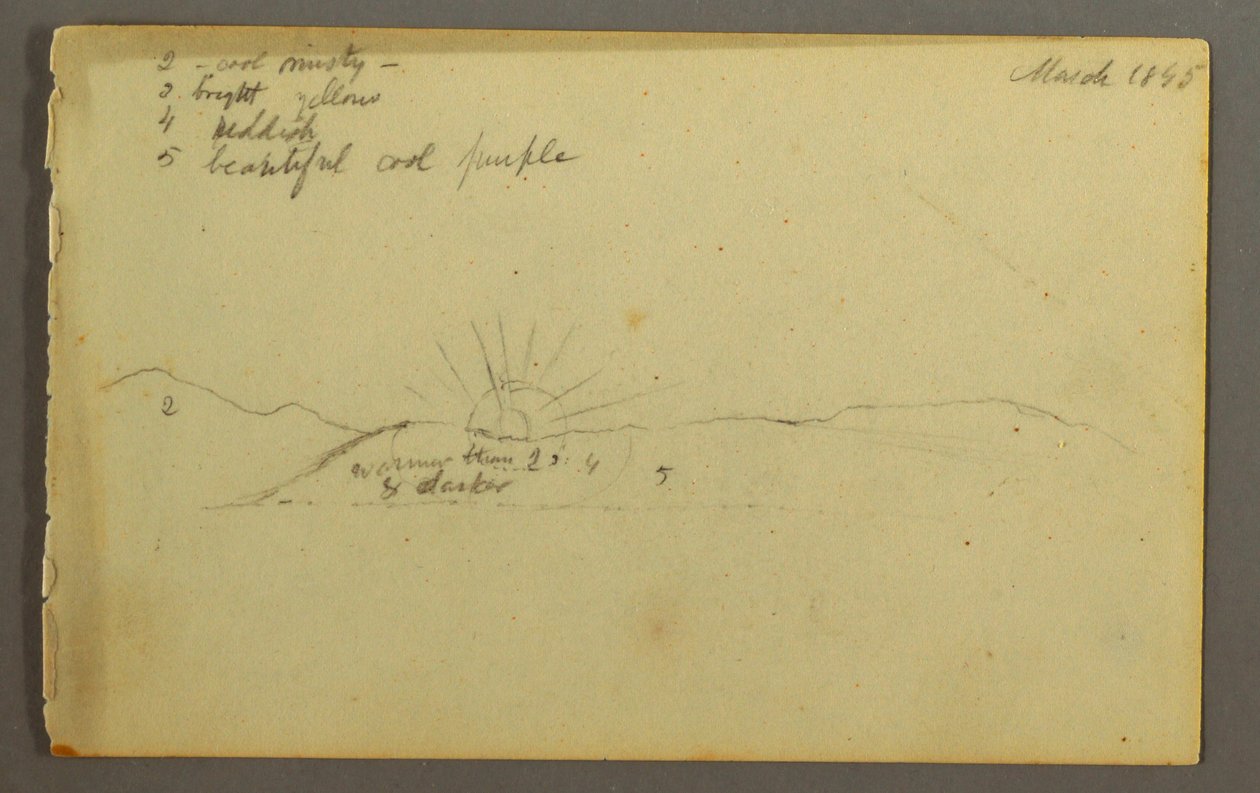 2 - cool misty -
March 1845
3 bright yellow
4 reddish
5 beautiful cool purple
2
warmer than 2 3 4
& darker
5